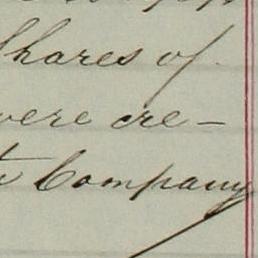 Shares of
were cre-
Company